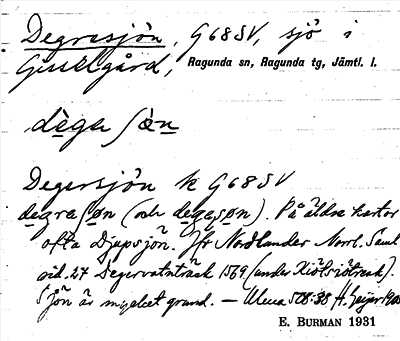 Degrasjön, G 68 SV, sjö i
Gisselgård, Ragunda sn, Ragunda tg, Jämtl. l.
dega sæn
Degersjön k G 68 SV
degrasøn (och degasøn). På äldre kartor
ofta Djupsjön. Jfr Nordlander Norrl. Saml
sid. 27 Degervatnträsk 1569 (under
Sjön är mycket grund. — Uleua 508:38 H. Geijer
E. BURMAN 1931